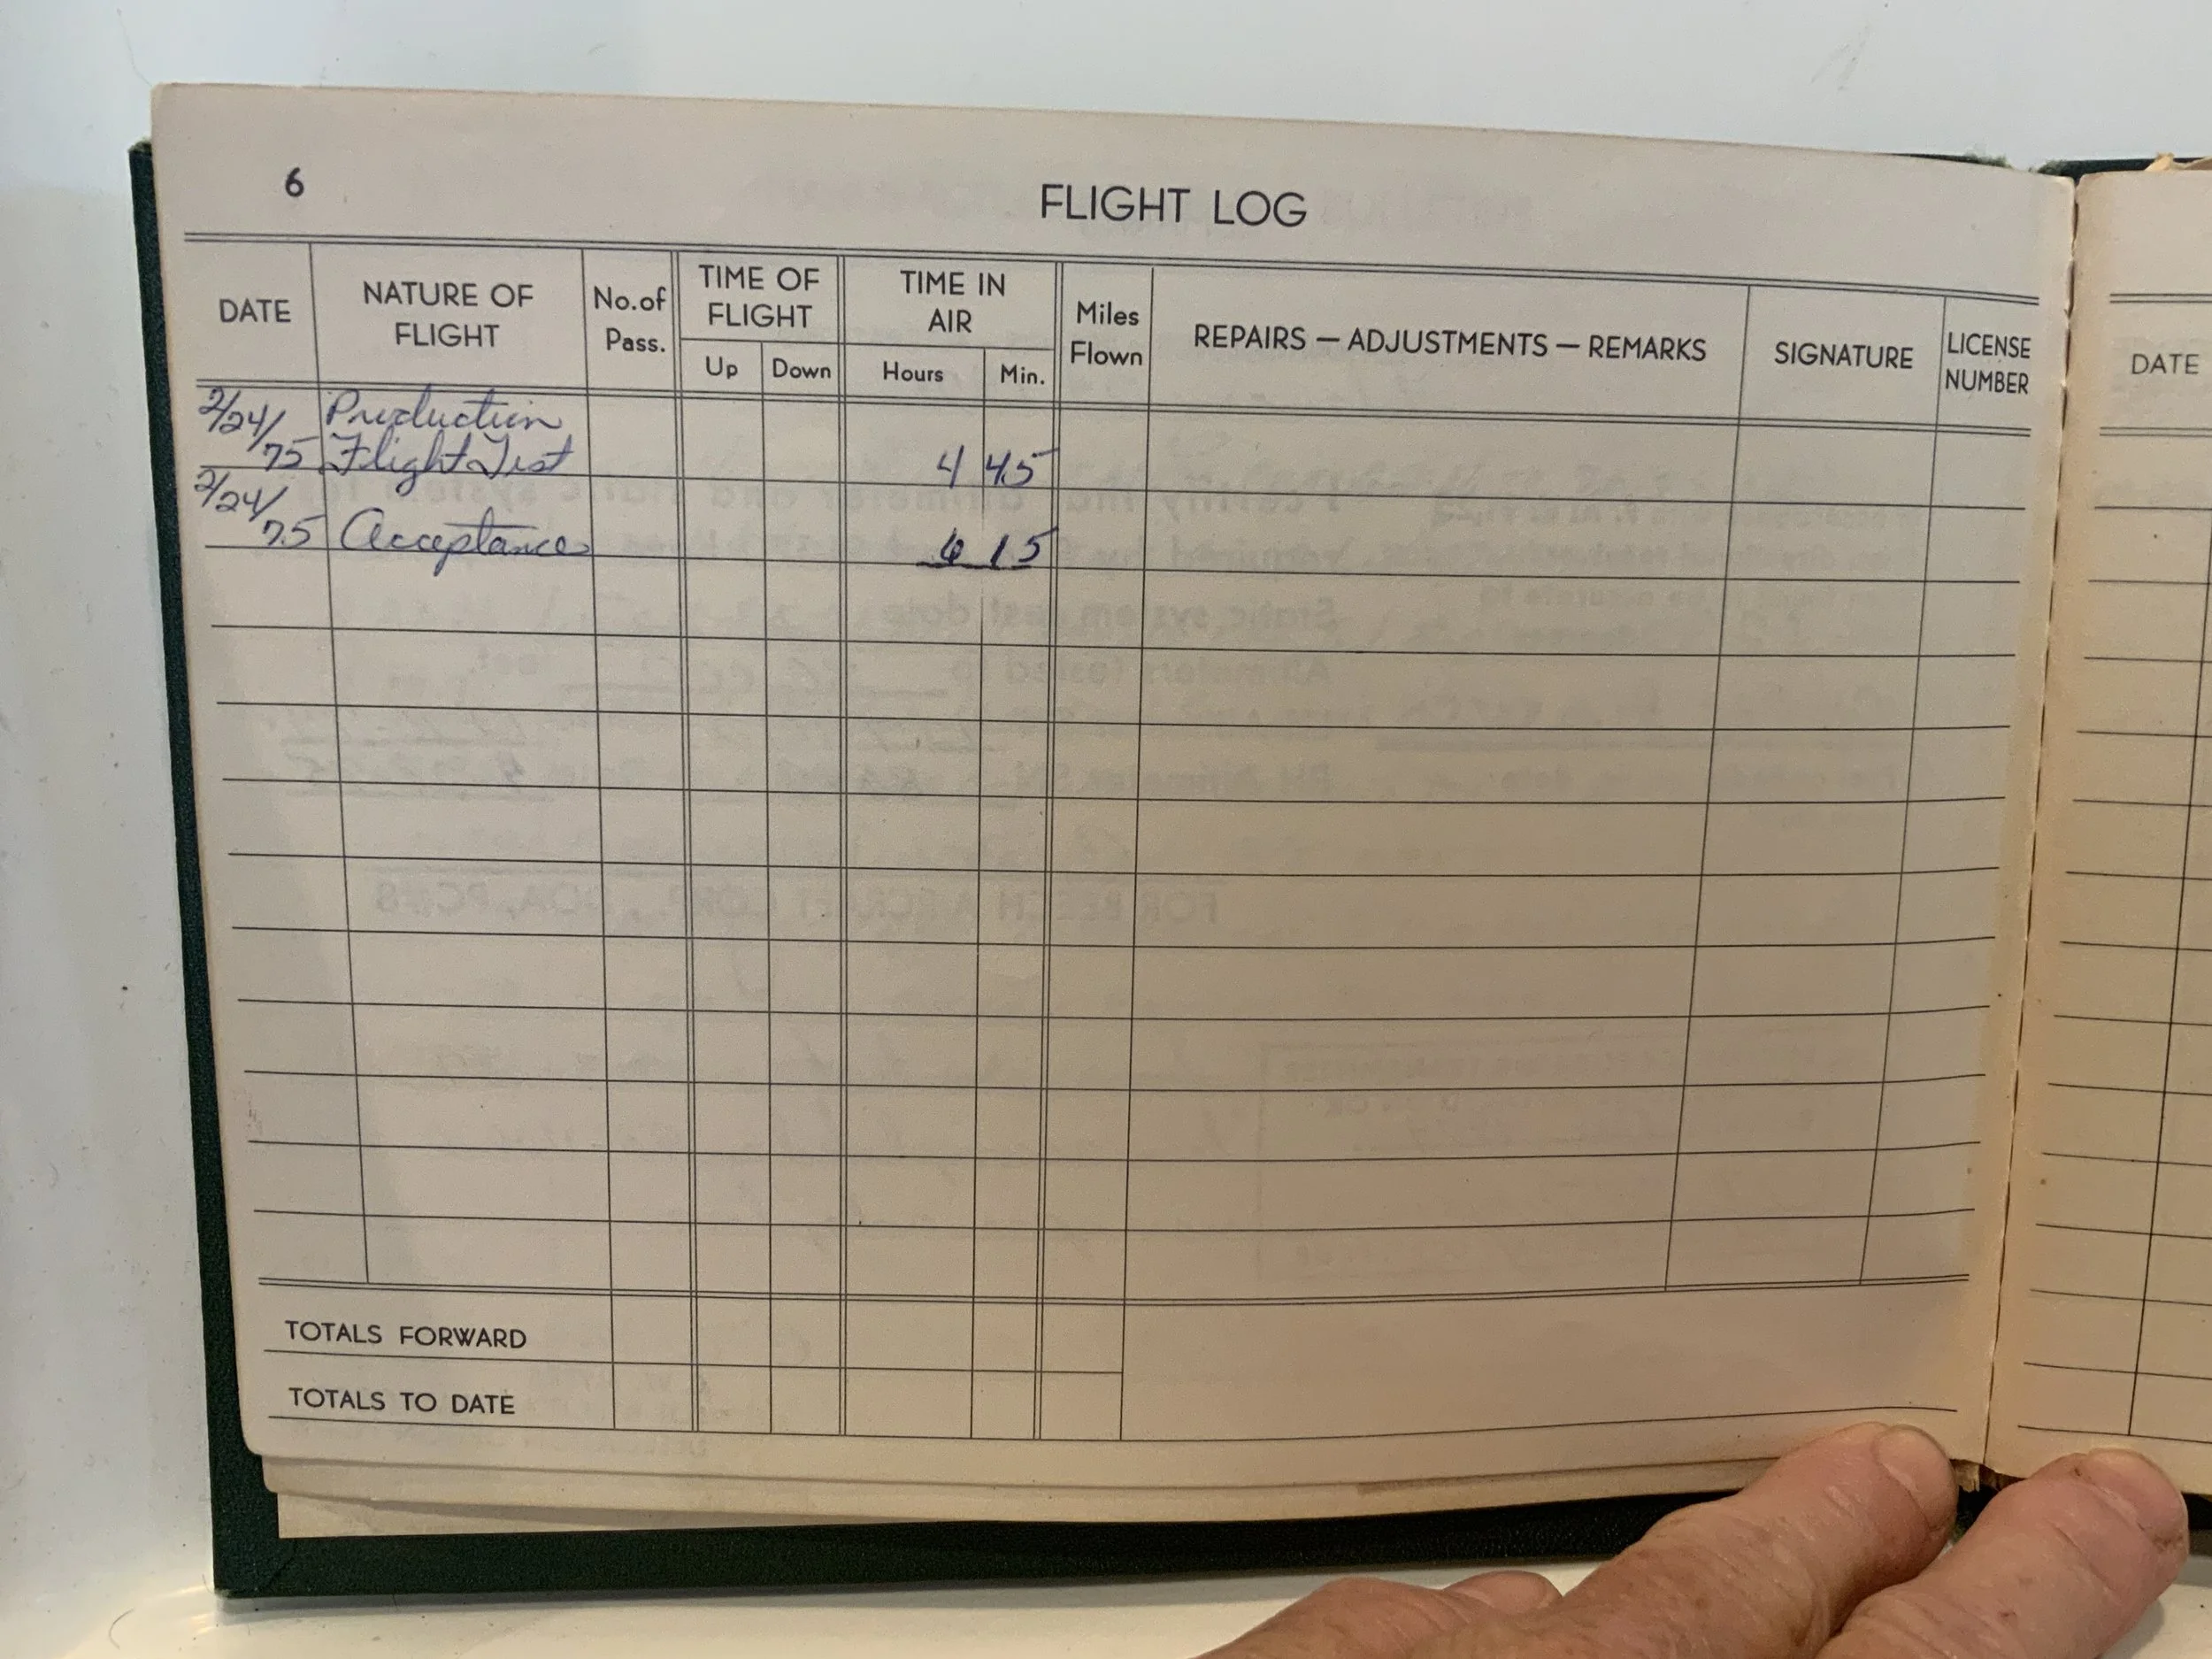 6
FLIGHT LOG
DATE NATURE OF FLIGHT No. of Pass. TIME OF FLIGHT Up Down TIME IN AIR Hours Min. Miles Flown REPAIRS — ADJUSTMENTS — REMARKS SIGNATURE LICENSE NUMBER
2/24/75 Production Flight Test 4 45
2/24/75 Acceptance 6 15
TOTALS FORWARD
TOTALS TO DATE
DATE